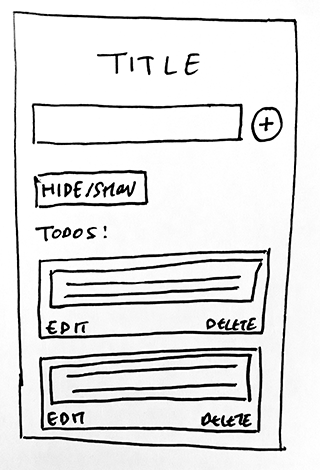 TITLE
+
HIDE/SHOW
TODOS!
EDIT DELETE
EDIT DELETE